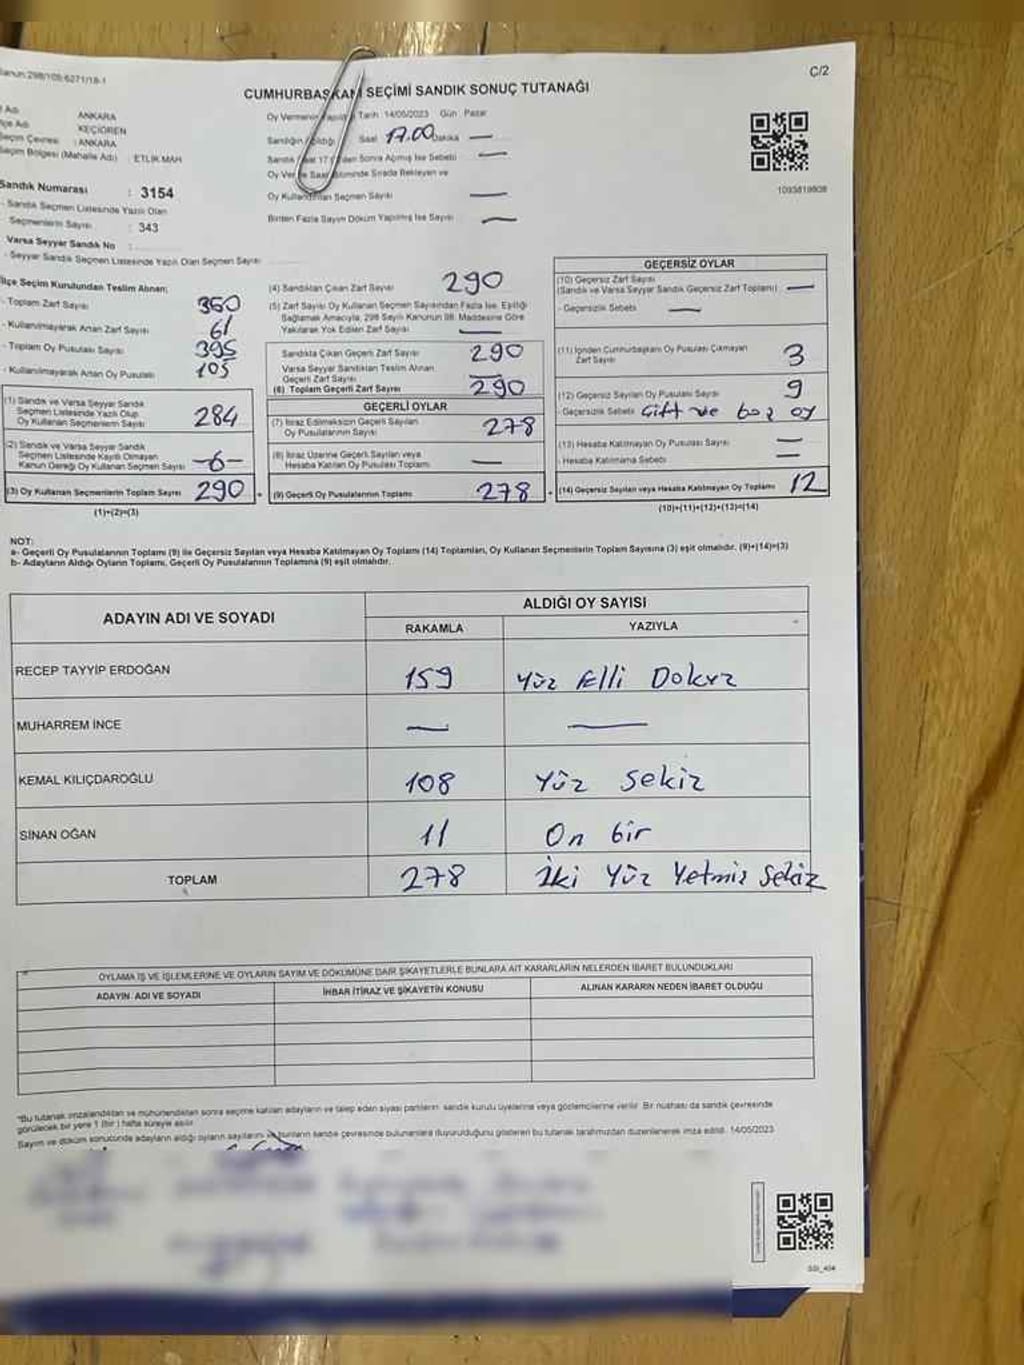 Kanun:298/105-6271/18-1
Ç/2
CUMHURBAŞKANI SEÇİMİ SANDIK SONUÇ TUTANAĞI
Adı ANKARA
Adı KEÇİÖREN
Seçim Çevresi : ANKARA
Seçim Bölgesi (Mahalle Adı) : ETLİK MAH
Sandık Numarası : 3154
- Sandık Seçmen Listesinde Yazılı Olan
Seçmenlerin Sayısı : 343
Varsa Seyyar Sandık No :
- Seyyar Sandık Seçmen Listesinde Yazılı Olan Seçmen Sayısı
Oy Vermenin Yapıldığı Tarih 14/05/2023 Gün Pazar
Sandığın Açıldığı Saat 17.00 Dakika —
Sandık Saat 17 den Sonra Açılmış İse Sebebi —
Oy Verme Saati Bitiminde Sırada Bekleyen ve
Oy Kullandırılan Seçmen Sayısı —
Birden Fazla Sayım Döküm Yapılmış İse Sayısı —
1093819808
İlçe Seçim Kurulundan Teslim Alınan:
- Toplam Zarf Sayısı 350
- Kullanılmayarak Artan Zarf Sayısı 61
- Toplam Oy Pusulası Sayısı 395
- Kullanılmayarak Artan Oy Pusulası 105
(1) Sandık ve Varsa Seyyar Sandık
Seçmen Listesinde Yazılı Olup
Oy Kullanan Seçmenlerin Sayısı 284
(2) Sandık ve Varsa Seyyar Sandık
Seçmen Listesinde Kayıtlı Olmayan
Kanun Gereği Oy Kullanan Seçmen Sayısı -6-
(3) Oy Kullanan Seçmenlerin Toplam Sayısı 290
(1)+(2)=(3)
(4) Sandıktan Çıkan Zarf Sayısı 290
(5) Zarf Sayısı Oy Kullanan Seçmen Sayısından Fazla İse, Eşitliği
Sağlamak Amacıyla, 298 Sayılı Kanunun 98. Maddesine Göre
Yakılarak Yok Edilen Zarf Sayısı —
Sandıkta Çıkan Geçerli Zarf Sayısı 290
Varsa Seyyar Sandıktan Teslim Alınan
Geçerli Zarf Sayısı —
(6) Toplam Geçerli Zarf Sayısı 290
GEÇERLİ OYLAR
(7) İtiraz Edilmeksizin Geçerli Sayılan
Oy Pusulalarının Sayısı 278
(8) İtiraz Üzerine Geçerli Sayılan veya
Hesaba Katılan Oy Pusulası Toplamı —
(9) Geçerli Oy Pusulalarının Toplamı 278
GEÇERSİZ OYLAR
(10) Geçersiz Zarf Sayısı
(Sandık ve Varsa Seyyar Sandık Geçersiz Zarf Toplamı) —
- Geçersizlik Sebebi —
(11) İçinden Cumhurbaşkanı Oy Pusulası Çıkmayan
Zarf Sayısı 3
(12) Geçersiz Sayılan Oy Pusulası Sayısı 9
- Geçersizlik Sebebi Çift ve boş oy
(13) Hesaba Katılmayan Oy Pusulası Sayısı —
- Hesaba Katılmama Sebebi —
(14) Geçersiz Sayılan veya Hesaba Katılmayan Oy Toplamı 12
(10)+(11)+(12)+(13)=(14)
NOT:
a- Geçerli Oy Pusulalarının Toplamı (9) ile Geçersiz Sayılan veya Hesaba Katılmayan Oy Toplamı (14) Toplamları, Oy Kullanan Seçmenlerin Toplam Sayısına (3) eşit olmalıdır. (9)+(14)=(3)
b- Adayların Aldığı Oyların Toplamı, Geçerli Oy Pusulalarının Toplamına (9) eşit olmalıdır.
ADAYIN ADI VE SOYADI ALDIĞI OY SAYISI
RAKAMLA YAZIYLA
RECEP TAYYİP ERDOĞAN 159 Yüz Elli Dokuz
MUHARREM İNCE — —
KEMAL KILIÇDAROĞLU 108 Yüz Sekiz
SİNAN OĞAN 11 On bir
TOPLAM 278 İki Yüz Yetmiş Sekiz
OYLAMA İŞ VE İŞLEMLERİNE VE OYLARIN SAYIM VE DÖKÜMÜNE DAİR ŞİKAYETLERLE BUNLARA AİT KARARLARIN NELERDEN İBARET BULUNDUKLARI
ADAYIN ADI VE SOYADI İHBAR İTİRAZ VE ŞİKAYETİN KONUSU ALINAN KARARIN NEDEN İBARET OLDUĞU
*Bu tutanak imzalandıktan ve mühürlendikten sonra seçime katılan adayların ve talep eden siyasi partilerin sandık kurulu üyelerine veya gözlemcilerine verilir. Bir nüshası da sandık çevresinde
görülecek bir yere 1 (bir) hafta süreyle asılır.
Sayım ve döküm sonucunda adayların aldığı oyların sayılarını ve bunların sandık çevresinde bulunanlara duyurulduğunu gösteren bu tutanak tarafımızdan düzenlenerek imza edildi. 14/05/2023